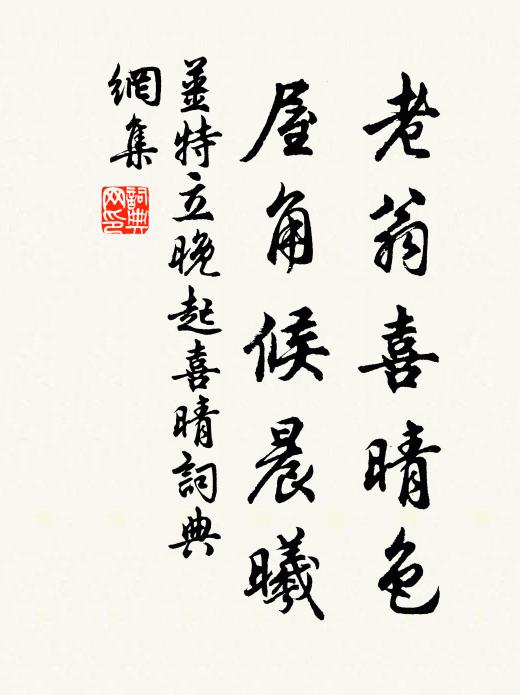 老翁喜晴色
屋角候晨曦
姜特立晚起喜晴詞典
網集
詞典
网印